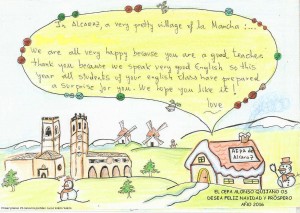 In ALCARAZ, a very pretty village of la Mancha :....
We are all very happy because you are a good teacher
thank you because we speak very good English so this
year all students of your english class have prepared
a surprise for you. We hope you like it!
love
AEPA de
Alcaraz
EL CEPA ALONSO QUIJANO OS
DESEA FELIZ NAVIDAD Y PRÓSPERO
AÑO 2016